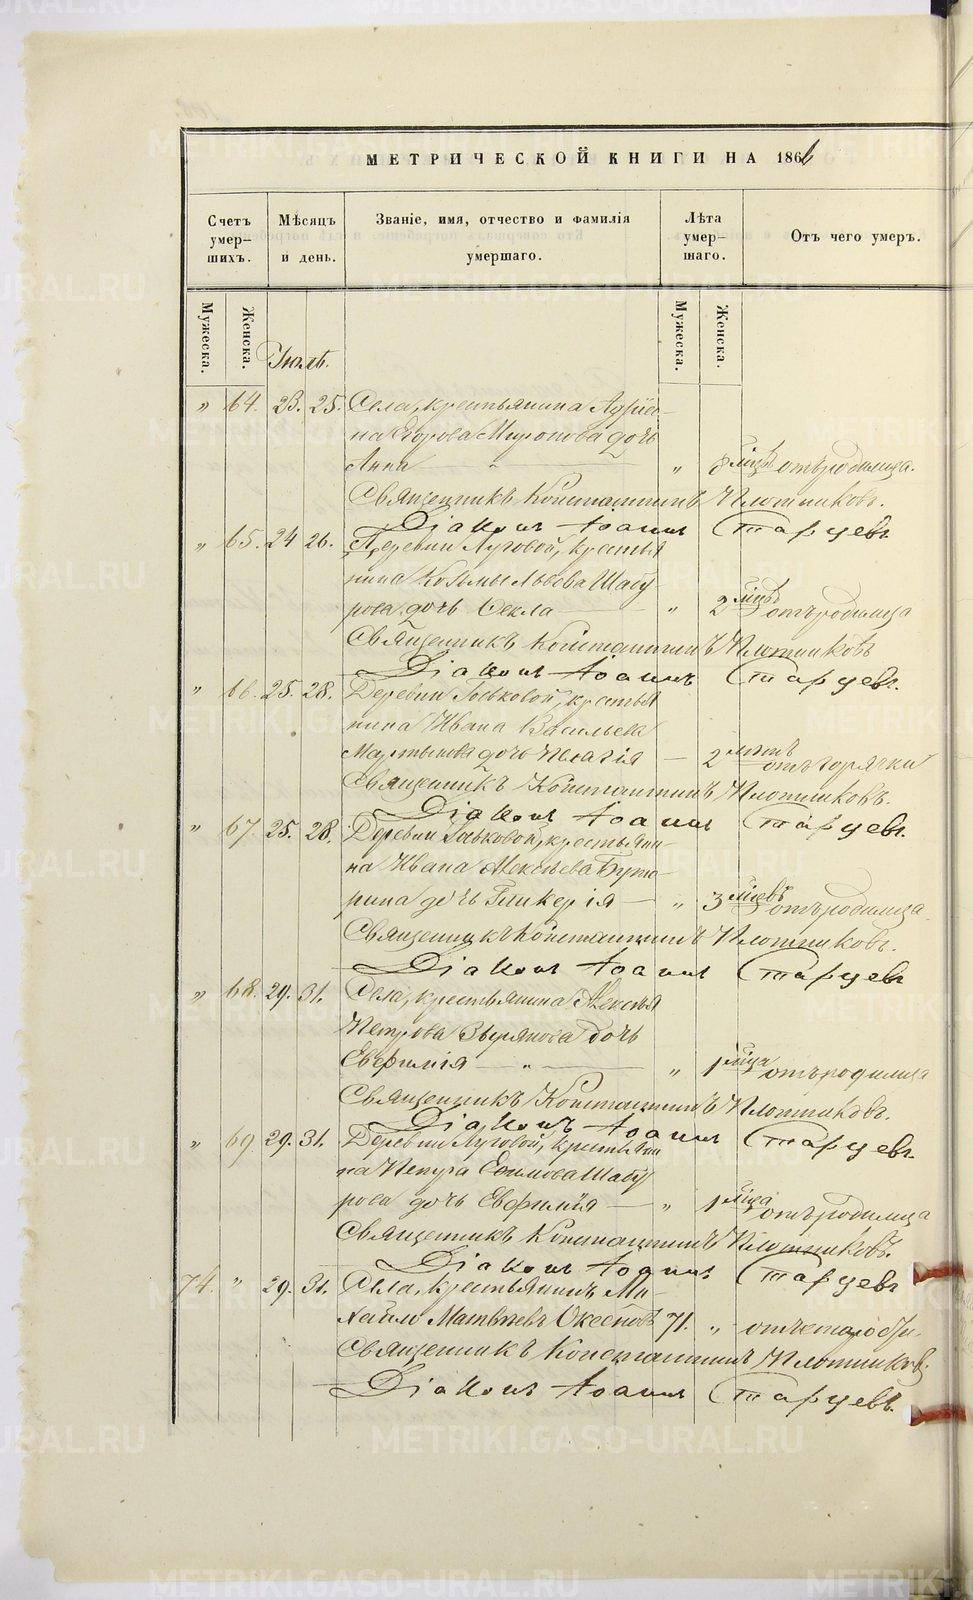 МЕТРИЧЕСКОЙ КНИГИ НА 1866
Счетъ умер- шихъ.
Мѣсяцъ и день.
Званіе, имя, отчество и фамилія умершаго.
Лѣта умер- шаго.
Отъ чего умеръ.
Мужеска. Женска. Мужеска. Женска.
Іюль.
" 64. 23. 25. Села, крестьянина Адріа-
на Егорова Миронова дочь
Анна " " 8 мѣцъ отъ родимца.
Священникъ Константинъ Плотниковъ.
Діаконъ Іоаннъ Старцевъ
" 65. 24 26. Деревни Луговой, крестья
нина Козьмы Львова Шабу
рова дочь Фекла " 2 мѣцъ отъ родимца
Священникъ Константинъ Плотниковъ
Діаконъ Іоаннъ Старцевъ.
" 66. 25. 28. Деревни Гоьковой, крестья
нина Ивана Васильева
Мартынова дочь Пелагія — 2 лѣтъ отъ горячки
Священникъ Константинъ Плотниковъ.
Діаконъ Іоаннъ Старцевъ.
" 67. 25. 28. Деревни крестьяни-
на Ивана Алексѣева Буто-
рина дочь Гликерія — " 3 мѣцевъ отъ родимца.
Священникъ Константинъ Плотниковъ.
Діаконъ Іоаннъ Старцевъ
" 68. 29. 31. Села, крестьянина Алексѣя
Петрова Зырянова дочь
Евфимія — " — " 1 мѣца отъ родимца
Священникъ Константинъ Плотниковъ.
Діаконъ Іоаннъ Старцевъ.
" 69 29. 31. Деревни Луговой, крестьяни
на Петра Ефимова Шабу
рова дочь Евфимія — " 1 мѣца отъ родимца
Священникъ Константинъ Плотниковъ.
Діаконъ Іоаннъ Старцевъ
74. " 29. 31. Села, крестьянинъ Ми-
хайло Матвѣевъ 71. " отъ старости.
Священникъ Константинъ Плотниковъ.
Діаконъ Іоаннъ Старцевъ.
METRIKI.GASO-URAL.RU